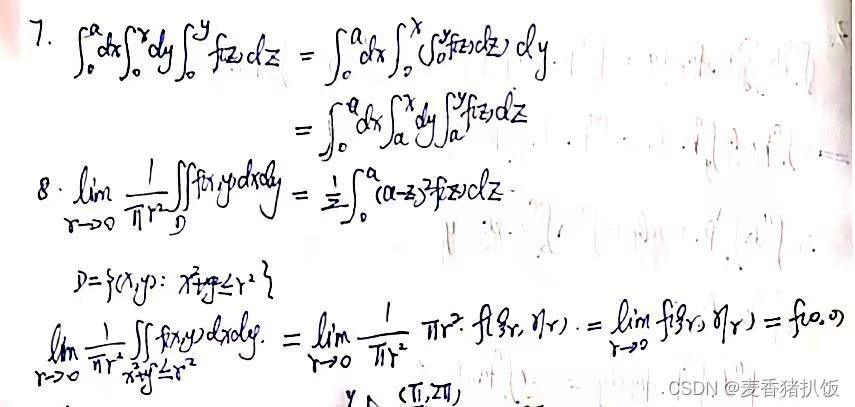 7. ∫₀ᵃdx∫₀ˣdy∫₀ʸf(z)dz = ∫₀ᵃdx∫₀ˣ(∫₀ʸf(z)dz)dy
= ∫₀ᵃdx∫ₐˣdy∫ₐʸf(z)dz
8. lim r→0 1/(πr²) ∬_D f(x,y)dxdy = 1/2 ∫₀ᵃ(a-z)²f(z)dz.
D={(x,y): x²+y²≤r²}
lim r→0 1/(πr²) ∬_{x²+y²≤r²} f(x,y)dxdy. = lim r→0 1/(πr²) πr²·f(ξr, ηr). = lim r→0 f(ξr, ηr) = f(0,0)
y (π,2π)
CSDN @麦香猪扒饭